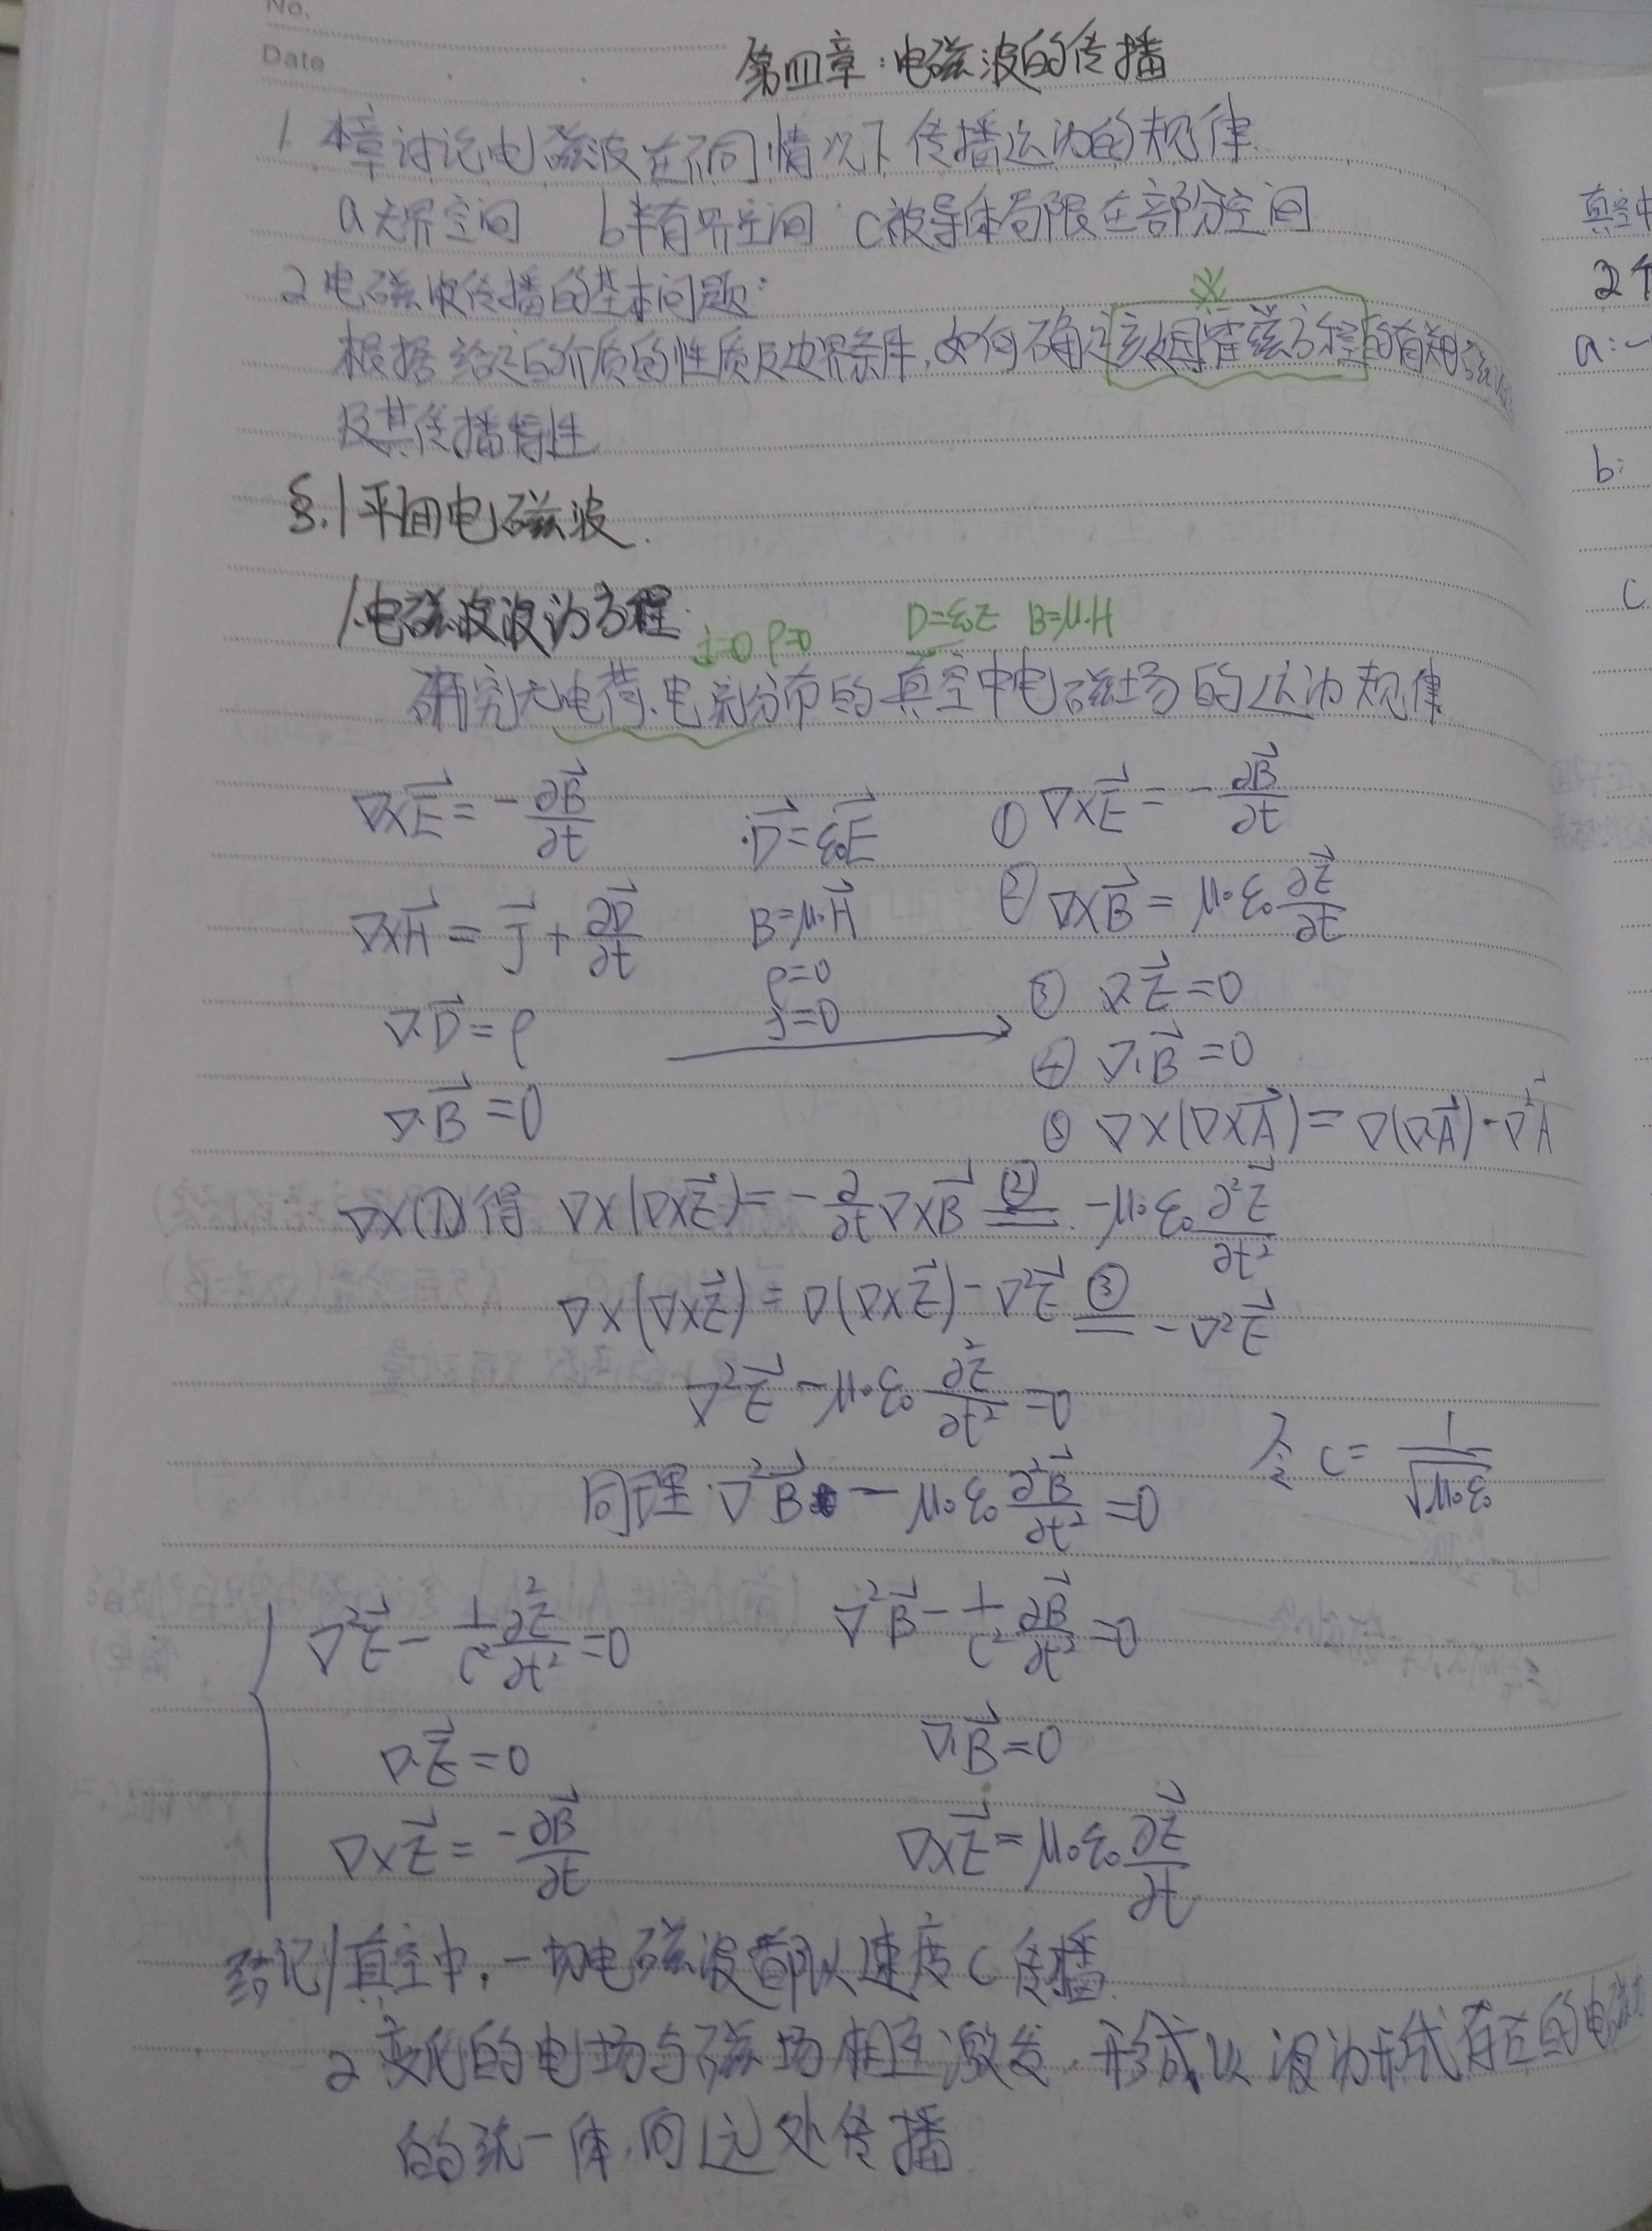 No.
Date
第四章:电磁波的传播
1 本章讨论电磁波在不同情况下传播运动的规律
a 无界空间 b 半有界空间 c 被导体局限在部分空间
2 电磁波传播的基本问题:
※
根据给定的介质的性质及边界条件,如何确定该处的方程的有关
及其传播特性
§.1 平面电磁波.
1.电磁波波动方程
j=0 ρ=0 D=ε₀E B=μ₀H
研究无电荷.电流分布的真空中电磁场的运动规律
∇×E⃗ = -∂B⃗/∂t D⃗=ε₀E⃗ ① ∇×E⃗ = -∂B⃗/∂t
∇×H⃗ = J⃗ + ∂D⃗/∂t B=μ₀H⃗ ② ∇×B⃗ = μ₀ε₀ ∂E⃗/∂t
ρ=0 ③ ∇·E⃗=0
∇·D⃗=ρ j=0 → ④ ∇·B⃗=0
∇·B⃗=0 ⑤ ∇×(∇×A⃗) = ∇(∇·A⃗)-∇²A⃗
∇×(1)得 ∇×(∇×E⃗) = -∂/∂t ∇×B⃗ (2)== -μ₀ε₀ ∂²E⃗/∂t²
∇×(∇×E⃗) = ∇(∇×E⃗) - ∇²E⃗ ③== -∇²E⃗
∇²E⃗ - μ₀ε₀ ∂²E⃗/∂t² =0
令 c= 1/√μ₀ε₀
同理 ∇²B⃗ - μ₀ε₀ ∂²B⃗/∂t² =0
{ ∇²E⃗ - 1/c² ∂²E⃗/∂t² =0 ∇²B⃗ - 1/c² ∂B⃗/∂t² =0
∇·E⃗=0 ∇·B⃗=0
∇×E⃗ = -∂B⃗/∂t ∇×E⃗ = μ₀ε₀ ∂E⃗/∂t
1 真空中,一切电磁波都以速度 C 传播
2 变化的电场与磁场相互激发.形成以波动形式存在的电磁
的统一体.向远处传播
真空中
2个
a:
b:
C